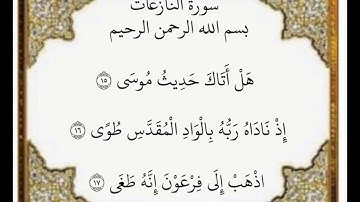 سورة النازعات
بسم الله الرحمن الرحيم
هَلْ أَتَاكَ حَدِيثُ مُوسَى ١٥
إِذْ نَادَاهُ رَبُّهُ بِالْوَادِ الْمُقَدَّسِ طُوًى ١٦
اذْهَبْ إِلَى فِرْعَوْنَ إِنَّهُ طَغَى ١٧